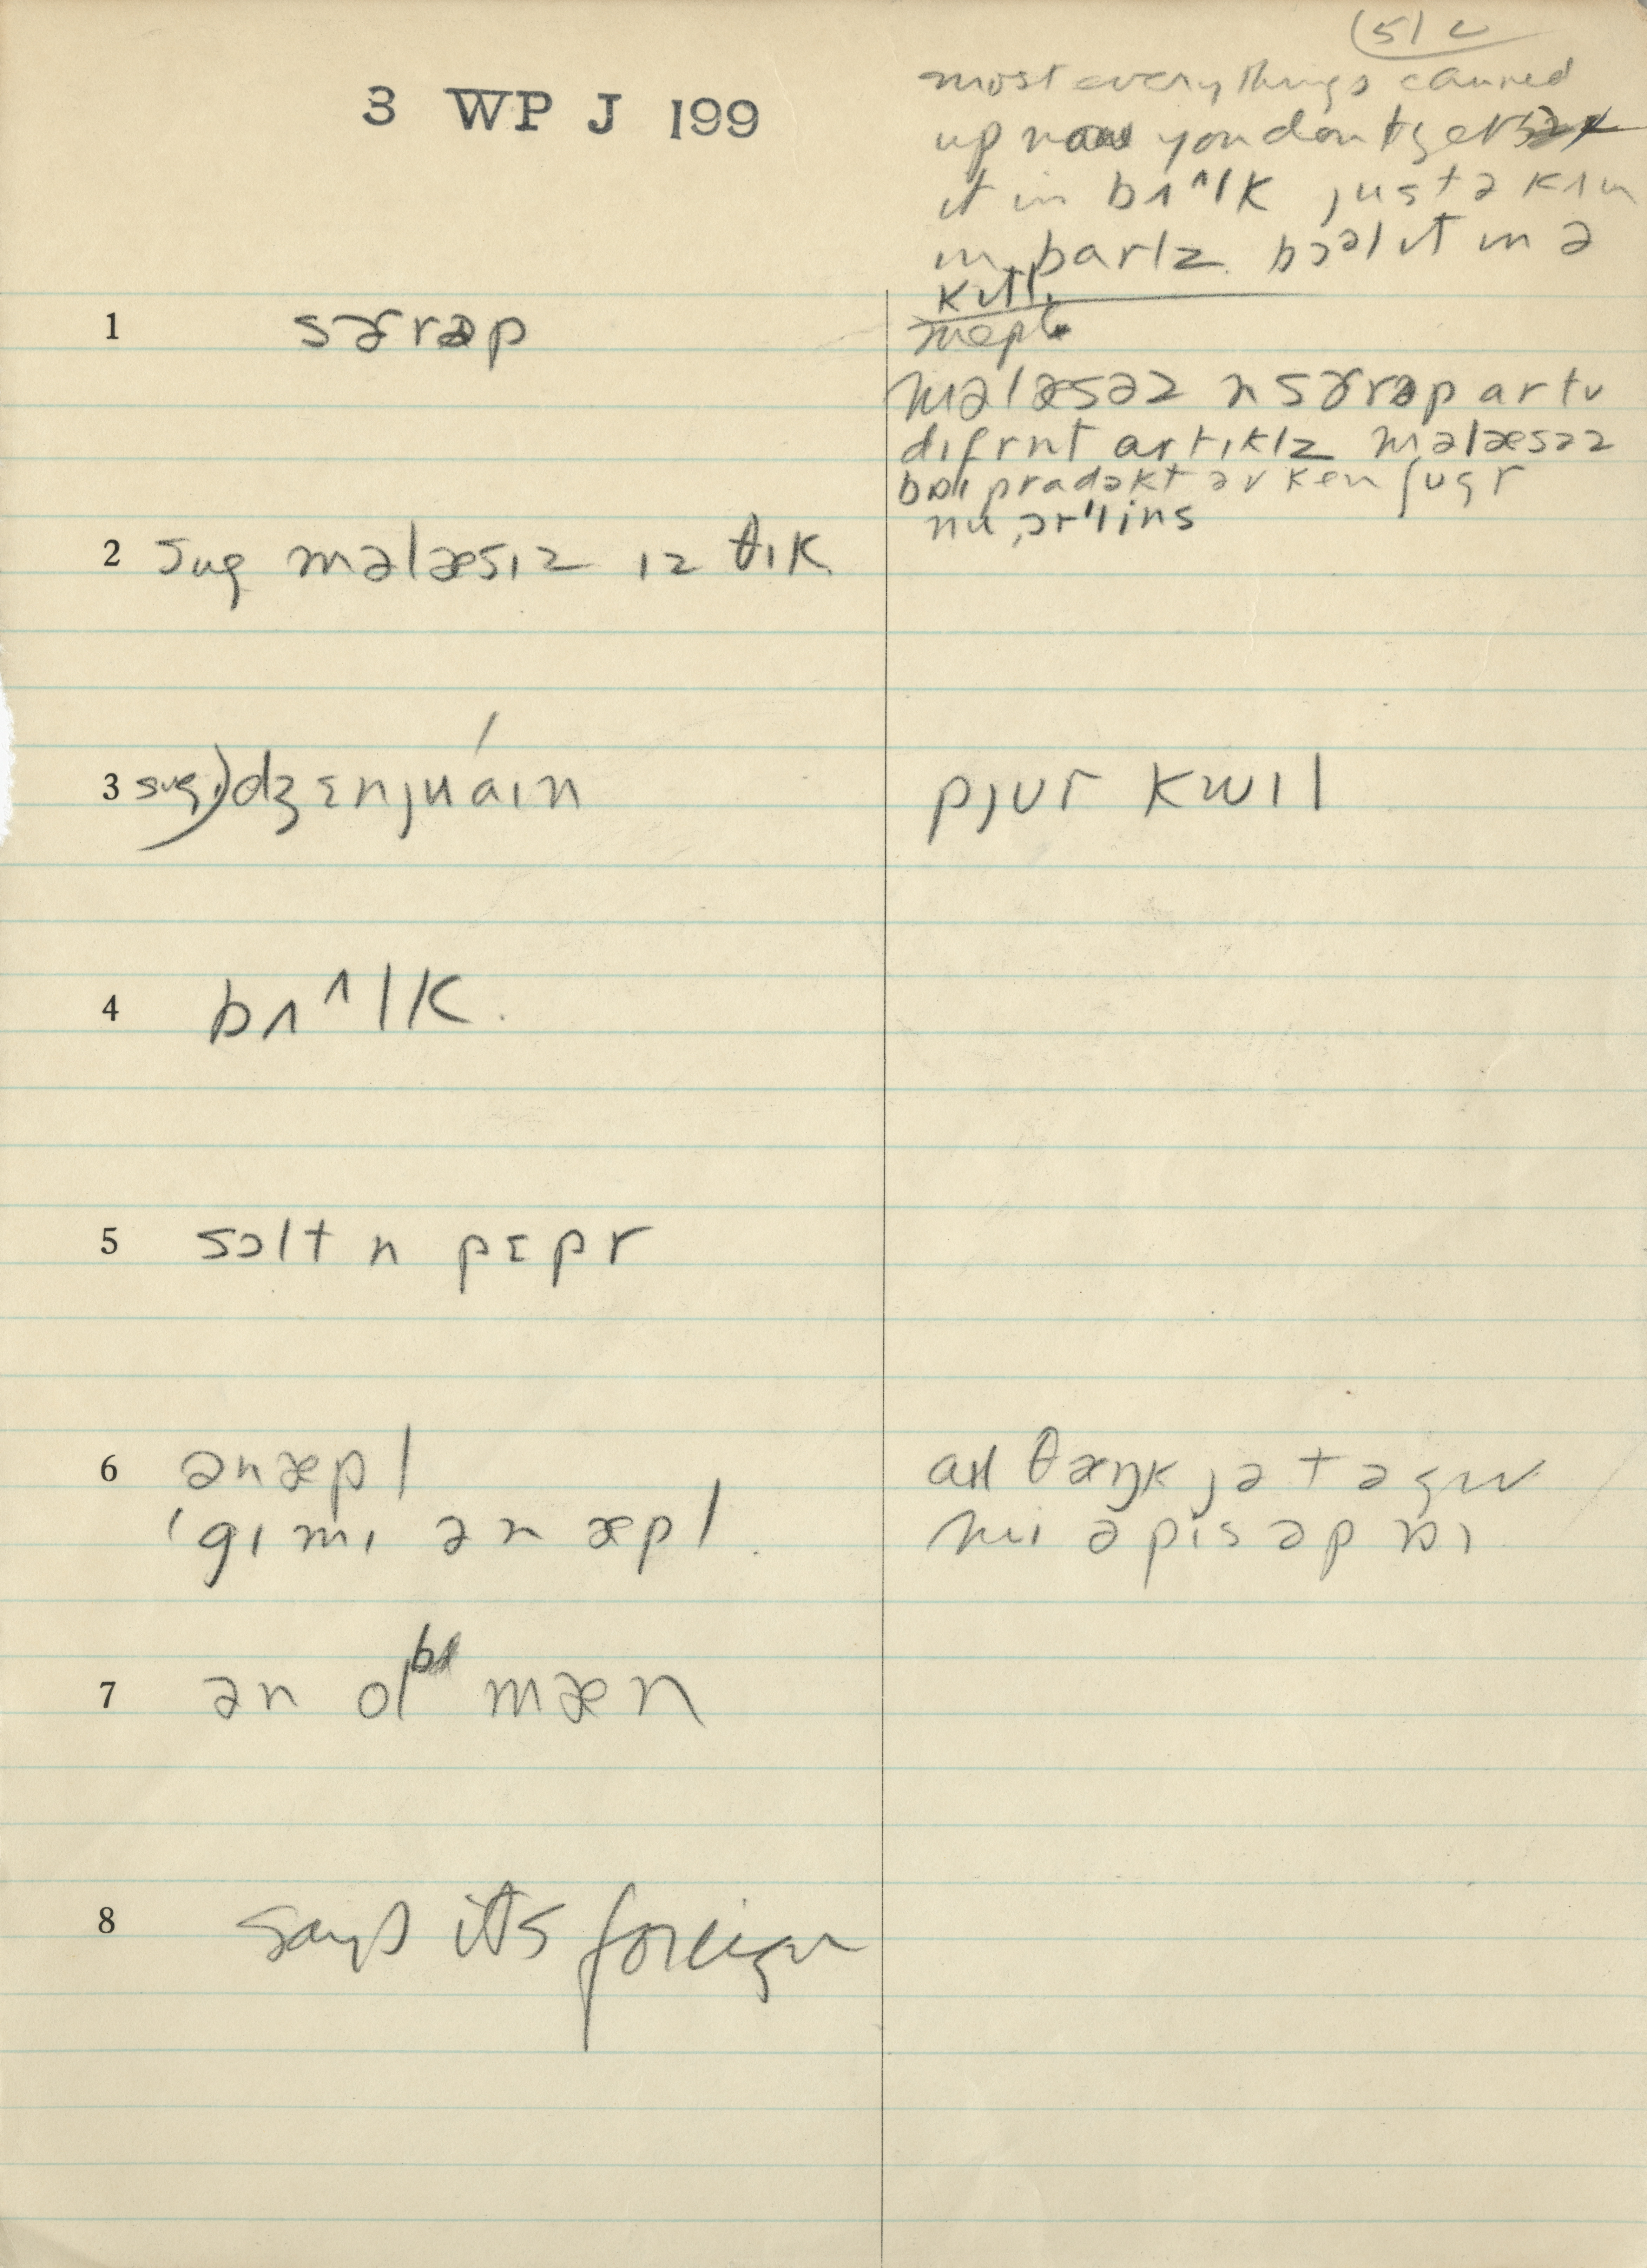 (51 2
3 WP J 199
most everythings canned
up now you don't get
it in bɪ^lk just ə kɪn
in barlz bɔəl ɪt ɪn ə
kɪtl
1 sɚrəp
mepl
məlæsəz n sɚrəp ar tʊ
dɪfrnt artɪklz məlæsəz
pradəkt əv ken ʃugr
nu ɔr'lins
2 sug məlæsɪz ɪz θɪk
3 sug.) dʒɛnjuáɪn
pjur kwɪl
4 bʌ^lk.
5 sɔlt n pɛpr
6 ənæpl
'gɪmɪ ən æpl.
θæŋk jə tə gɪv
mɪ ə pis əp paɪ
7 ən ol mæn
8 says its foreign